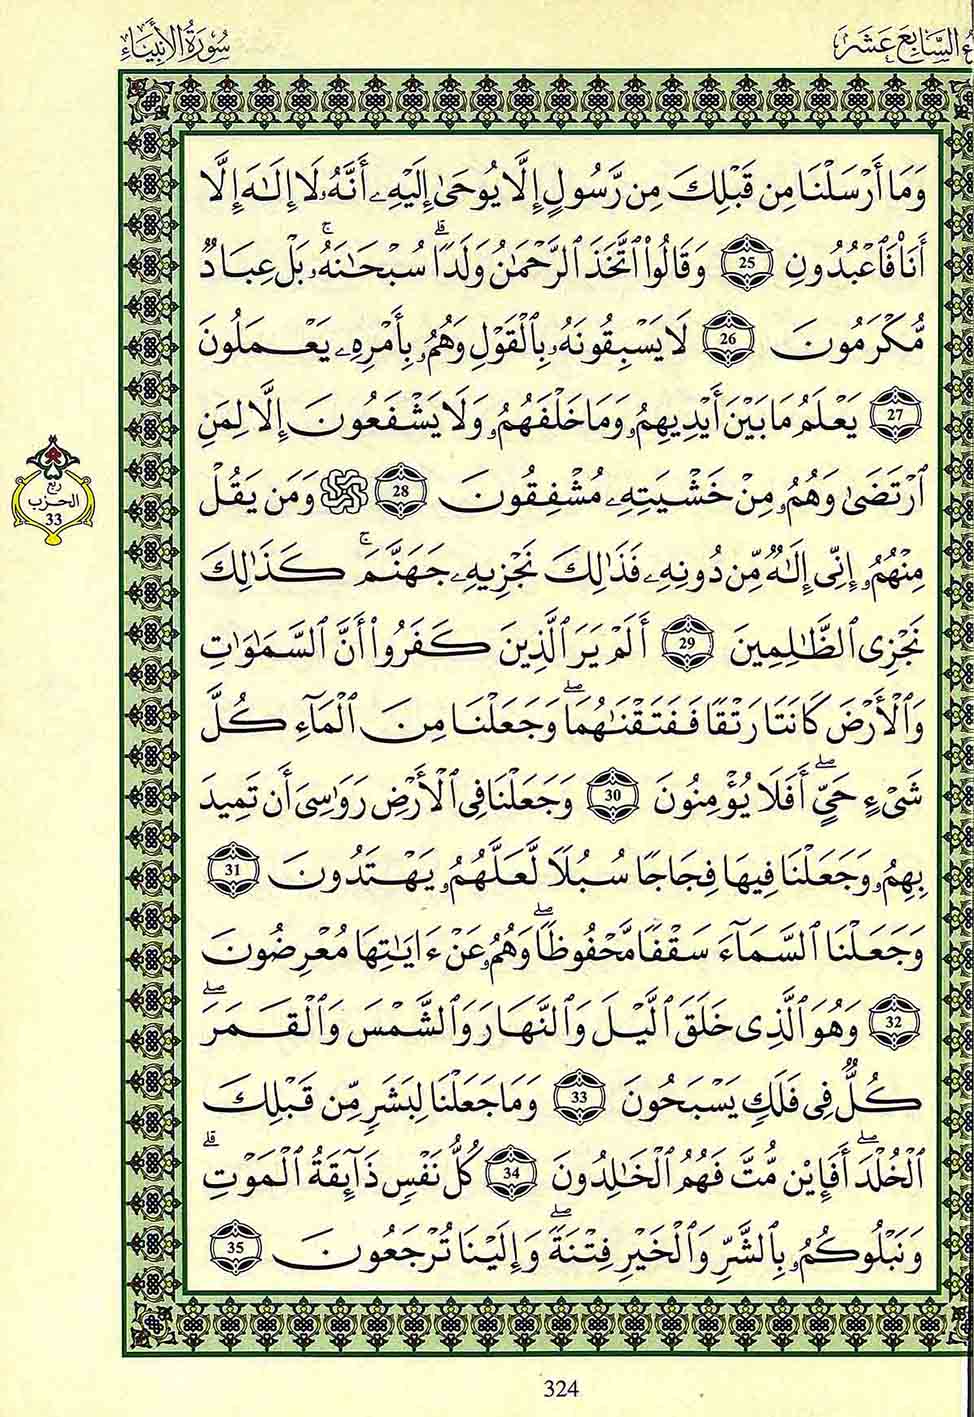 السَّابِعَ عَشَرَ
سُورَةُ الأَنبِيَاءِ
وَمَا أَرْسَلْنَا مِن قَبْلِكَ مِن رَّسُولٍ إِلَّا يُوحَىٰ إِلَيْهِۦ أَنَّهُۥ لَا إِلَٰهَ إِلَّا
أَنَا۠ فَٱعْبُدُونِ 25 وَقَالُوا۟ ٱتَّخَذَ ٱلرَّحْمَٰنُ وَلَدًاۗ سُبْحَٰنَهُۥۚ بَلْ عِبَادٌ
مُّكْرَمُونَ 26 لَا يَسْبِقُونَهُۥ بِٱلْقَوْلِ وَهُمُۥ بِأَمْرِهِۦ يَعْمَلُونَ
27 يَعْلَمُ مَا بَيْنَ أَيْدِيهِمُۥ وَمَا خَلْفَهُمُۥ وَلَا يَشْفَعُونَ إِلَّا لِمَنِ
ٱرْتَضَىٰ وَهُمُۥ مِنْ خَشْيَتِهِۦ مُشْفِقُونَ 28 وَمَن يَقُلْ
ربع
الحزب
33
مِنْهُمُۥ إِنِّى إِلَٰهٌ مِّن دُونِهِۦ فَذَٰلِكَ نَجْزِيهِۦ جَهَنَّمَۚ كَذَٰلِكَ
نَجْزِى ٱلظَّٰلِمِينَ 29 أَلَمْ يَرَ ٱلَّذِينَ كَفَرُوا۟ أَنَّ ٱلسَّمَٰوَٰتِ
وَٱلْأَرْضَ كَانَتَا رَتْقًا فَفَتَقْنَٰهُمَاۖ وَجَعَلْنَا مِنَ ٱلْمَآءِ كُلَّ
شَىْءٍ حَىٍّۖ أَفَلَا يُؤْمِنُونَ 30 وَجَعَلْنَا فِى ٱلْأَرْضِ رَوَٰسِىَ أَن تَمِيدَ
بِهِمُۥ وَجَعَلْنَا فِيهَا فِجَاجًا سُبُلًا لَّعَلَّهُمُۥ يَهْتَدُونَ 31
وَجَعَلْنَا ٱلسَّمَآءَ سَقْفًا مَّحْفُوظًاۖ وَهُمُۥ عَنْ ءَايَٰتِهَا مُعْرِضُونَ
32 وَهُوَ ٱلَّذِى خَلَقَ ٱلَّيْلَ وَٱلنَّهَارَ وَٱلشَّمْسَ وَٱلْقَمَرَۖ
كُلٌّ فِى فَلَكٍ يَسْبَحُونَ 33 وَمَا جَعَلْنَا لِبَشَرٍ مِّن قَبْلِكَ
ٱلْخُلْدَۖ أَفَإِي۟ن مُّتَّ فَهُمُ ٱلْخَٰلِدُونَ 34 كُلُّ نَفْسٍ ذَآئِقَةُ ٱلْمَوْتِۗ
وَنَبْلُوكُمُۥ بِٱلشَّرِّ وَٱلْخَيْرِ فِتْنَةًۖ وَإِلَيْنَا تُرْجَعُونَ 35
324